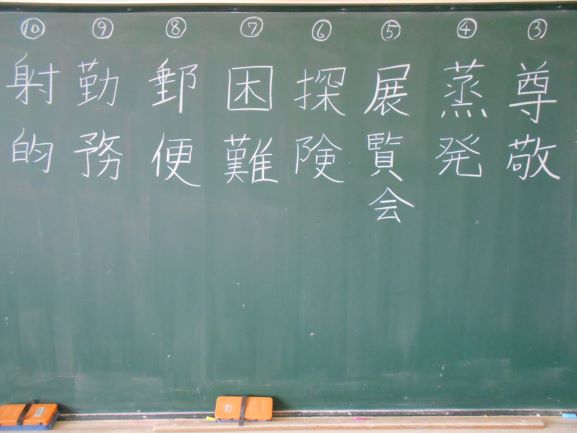 ③ 尊敬
④ 蒸発
⑤ 展覧会
⑥ 探険
⑦ 困難
⑧ 郵便
⑨ 勤務
⑩ 射的